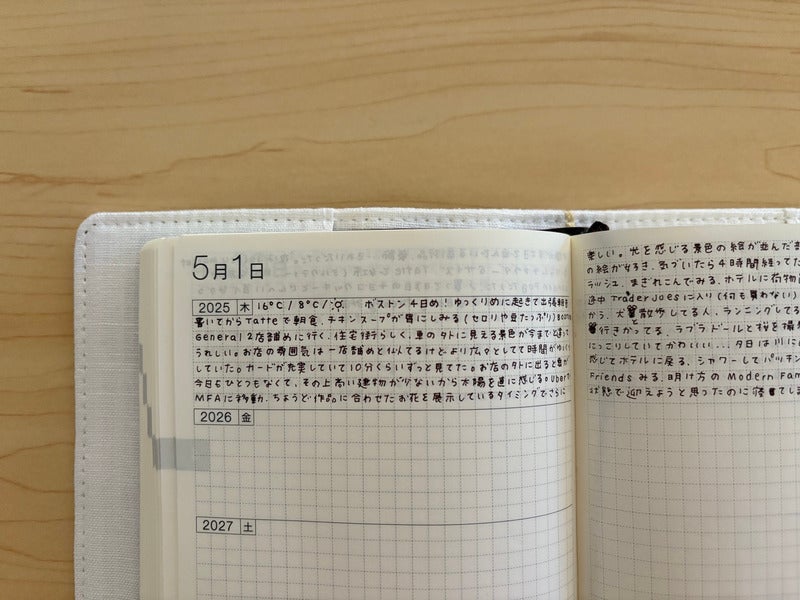 5月1日
2025 木 16℃/8℃/ ボストン4日め！ゆっくりめに起きて出張
書いてからTatteで朝食.チキンスープが胃にしみる(セロリや豆たっぷり)
General 2店舗めに行く.住宅街らしく、車のタトに見える景色が今までと
うれしい。お店の雰囲気は一店舗めと似てるけどより広々としてて時間がゆっくり
していた。カードが充実していて10分くらいずっと見てた。お店のタトに出ると雲が
今日もひとつもなくて、その上高い建物が少ないから太陽を近に感じる。Uberで
MFAに移動.ちょうど作品に合わせたお花を展示しているタイミングでさらに
2026 金
2027 土
楽しい。光を感じる景色の絵が並んだ
の絵が好き.気づいたら4時間経ってた
ラッシュ.まぎれこんでみる.ホテルに荷物
途中Trader Joesに入り(何も買わない)
かう.犬散歩してる人、ランニングしてる
行きかってる.ラブラドールと桜を撮
にっこりしていてかわいい...夕日は川に
感じてホテルに戻る.シャワーしてパッキン
Friendsみる.明け方のModern Fam
状態で迎えようと思ったのに寝てしま